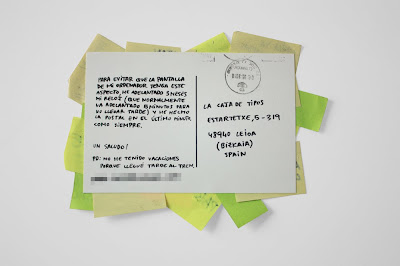 PARA EVITAR QUE LA PANTALLA
DE MI ORDENADOR TENGA ESTE
ASPECTO, HE ADELANTADO 3 MESES
MI RELOJ (QUE NORMALMENTE
VA ADELANTADO 8 MINUTOS PARA
NO LLEGAR TARDE) Y HE HECHO
LA POSTAL EN EL ÚLTIMO MINUTO
COMO SIEMPRE.
UN SALUDO!
PD: NO HE TENIDO VACACIONES
PORQUE LLEGUÉ TARDE AL TREN.
LA CAJA DE TIPOS
ESTARTETXE, 5 - 319
48940 LEIOA
(BIZKAIA)
SPAIN